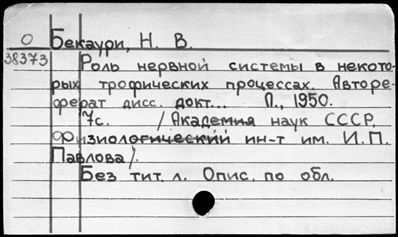 О Бекаури, Н. В.
38373 Роль нервной системы в некото-
рых трофических процессах. Авторе-
ферат дисс. докт... Л., 1950.
17с. /Академия наук СССР,
Физиологический ин-т им. И.П.
Павлова/.
Без тит. л. Опис. по обл.